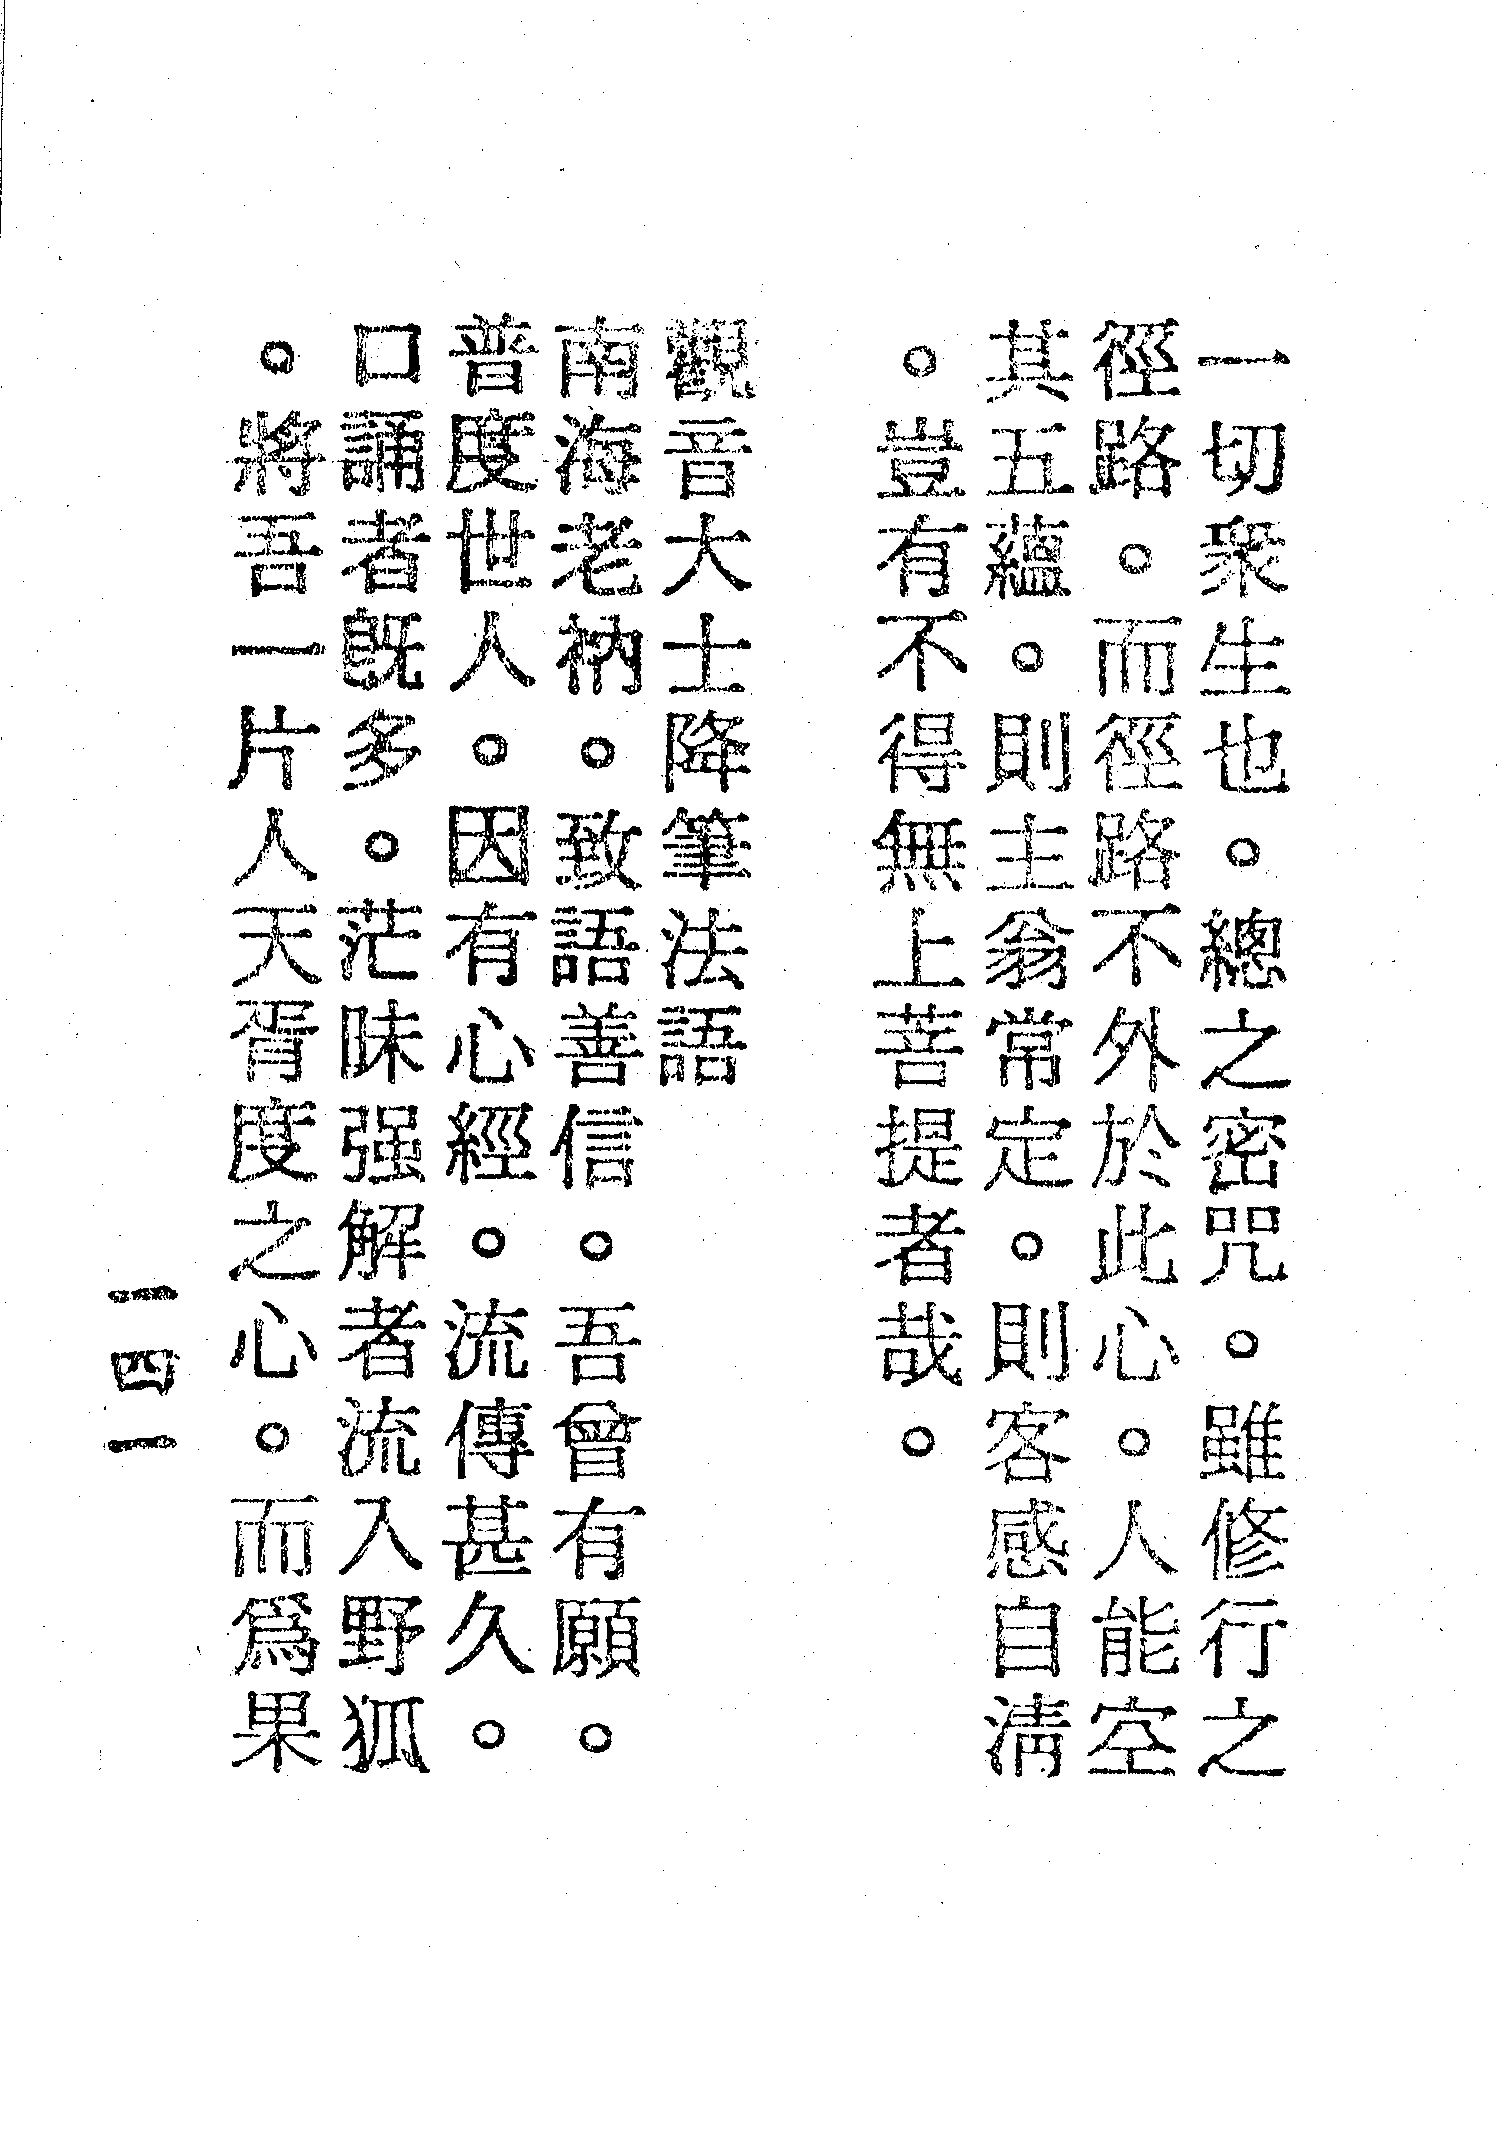 一切衆生也。總之密咒。雖修行之
徑路。而徑路不外於此心。人能空
其五蘊。則主翁常定。則客感自淸
。豈有不得無上菩提者哉。
觀音大士降筆法語
南海老衲。致語善信。吾曾有願。
普度世人。因有心經。流傳甚久。
口誦者旣多。茫昧强解者流入野狐
。將吾一片人天胥度之心。而爲果
一四一